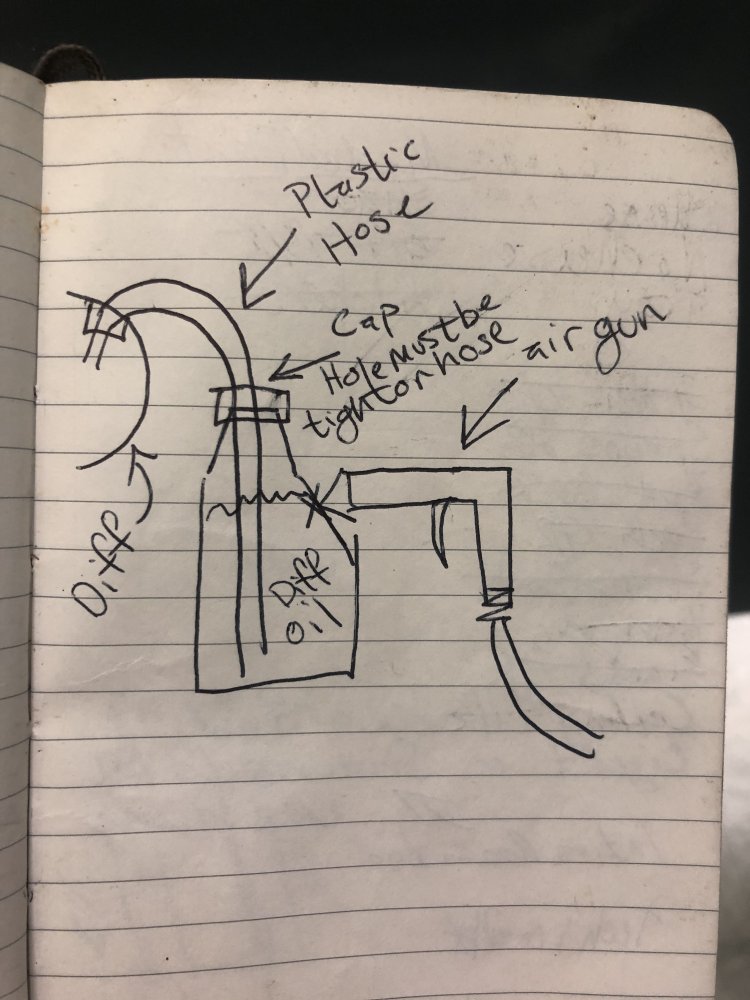 Plastic
Hose
Cap
Hole must be
tight or hose
air gun
Diff
Diff
Oil